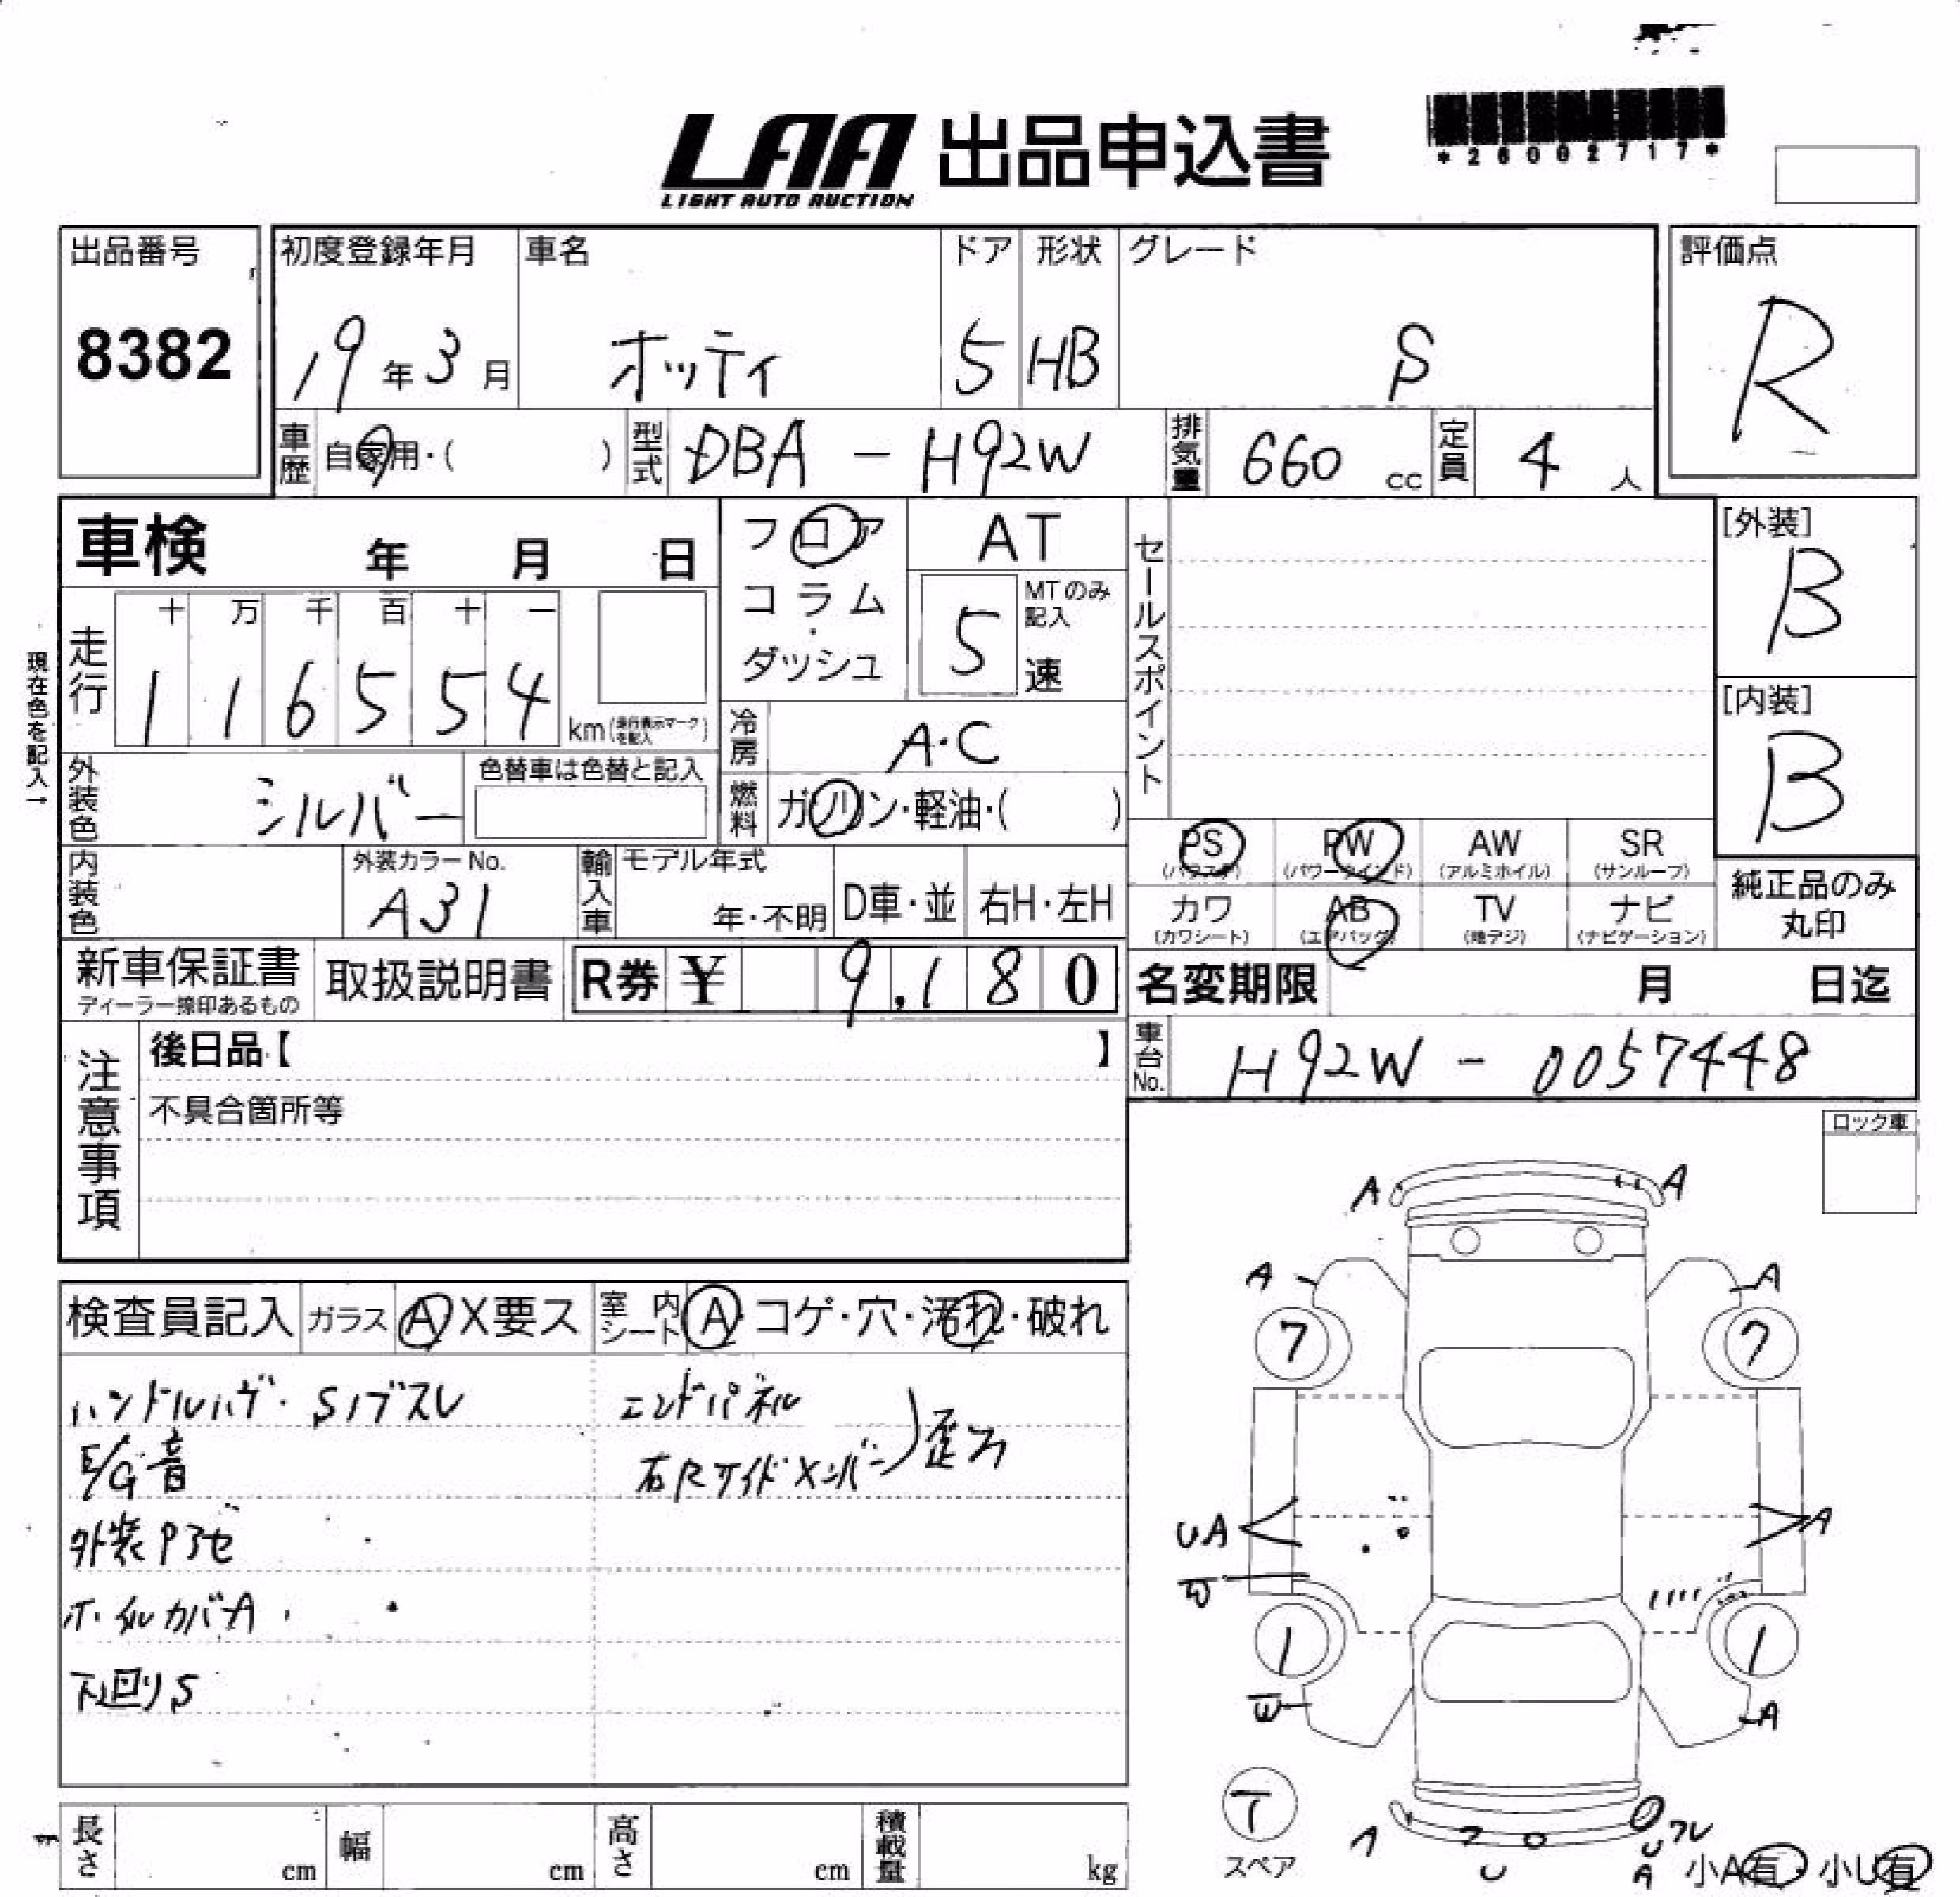 LAA 出品申込書
LIGHT AUTO AUCTION
*26002717*
出品番号
8382
初度登録年月
19年3月
車名
オッティ
ドア
5
形状
HB
グレード
S
評価点
R
車歴
自家用・( )
型式
DBA - H92W
排気量
660 cc
定員
4 人
車検 年 月 日
フロア
コラム
・
ダッシュ
AT
MTのみ記入
5 速
セールスポイント
[外装]
B
[内装]
B
現在色を記入→
走行
十 万 千 百 十 一
1 1 6 5 5 4
km(走行表示マークを記入)
冷房
A・C
外装色
シルバー
色替車は色替と記入
燃料
ガソリン・軽油・( )
PS
(パワステ)
PW
(パワーウインド)
AW
(アルミホイル)
SR
(サンルーフ)
カワ
(カワシート)
AB
(エアバッグ)
TV
(地デジ)
ナビ
(ナビゲーション)
純正品のみ
丸印
内装色
外装カラーNo.
A31
輸入車
モデル年式
年・不明
D車・並
右H・左H
新車保証書
ディーラー捺印あるもの
取扱説明書
R券 ¥ 9,180
名変期限 月 日迄
車台No.
H92W - 0057448
注意事項
後日品【 】
不具合箇所等
ロック車
検査員記入
ガラス
A X要ス
室内シート
A・コゲ・穴・汚れ・破れ
ハンドルハゲ・Sノブスレ
E/G音
外装Pアセ
ホイルカバA
下回りS
エンドパネル
右Rサイドメンバー
歪み
A A
A A
7 7
UA A
W
1 1
W A
T
スペア
A
U
U
A
小A有・小U有
長さ cm
幅 cm
高さ cm
積載量 kg